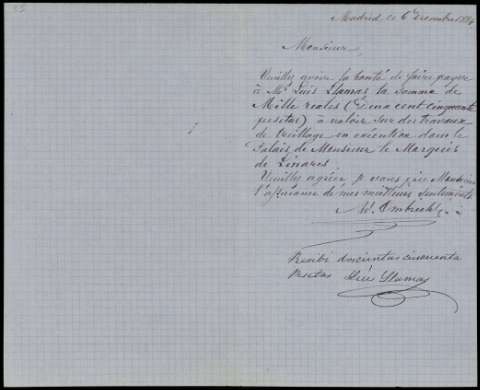 Madrid le 6 Decembre 1884
Monsieur,
Veuillez avoir la bonté de faire payer
à Mr Luis Llamas la somme de
Mille reales (deux cent cinquante
pesetas) à valoir sur des travaux
de en exécution dans le
Palais de Monsieur le Marquis
de Linares.
Veuillez agréer je vous prie Monsieur
l'assurance de mes meilleurs sentiments
Recibi doscientas cincuenta
Pesetas Luis Llamas